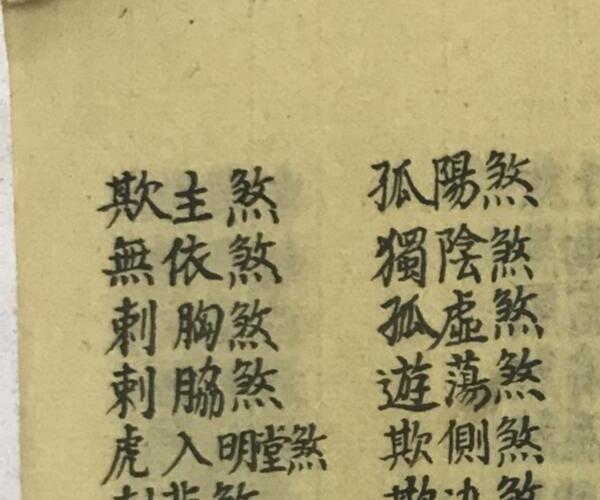 孤陽煞
獨陰煞
孤虛煞
遊蕩煞
欺側煞
欺主煞
無依煞
刺胸煞
刺脇煞
虎入明堂煞